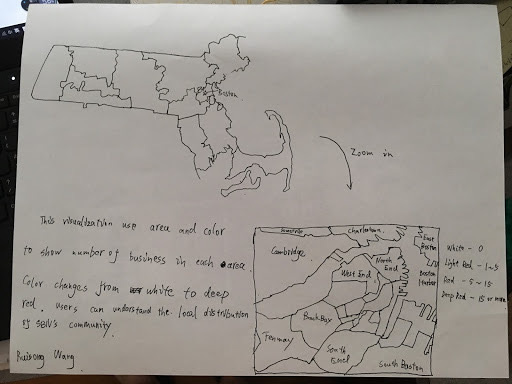 Boston
Zoom in
This visualization use area and color
to show number of business in each area.
Color changes from white to deep
red. Users can understand the local distribution
of
community.
Ruisong Wang
Somerville
Charlestown
East
Boston
Cambridge
North
End
West End
Boston
Harbor
Back Bay
Fenway
South
End
South Boston
White - 0
Light Red - 1~5
Red - 5~15
Deep Red - 15 or more